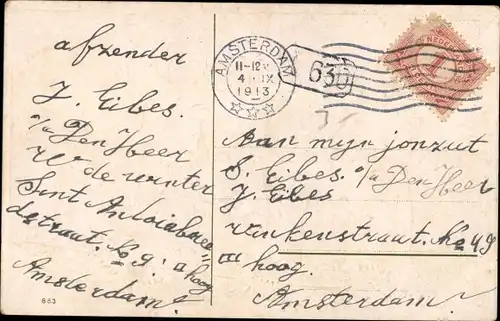 afzender
J. Eibes.
p/a Den Heer
de winter
Sint Antoniebree=
destraat. No 9: a hoog
Amsterdam!
653
AMSTERDAM
11-12V
4 IX
1913
630
NEDERLAND
1
3-
Aan mijn
S. Eibes. p/a Den Heer
J. Eibes
No 49
III hoog.
Amsterdam!